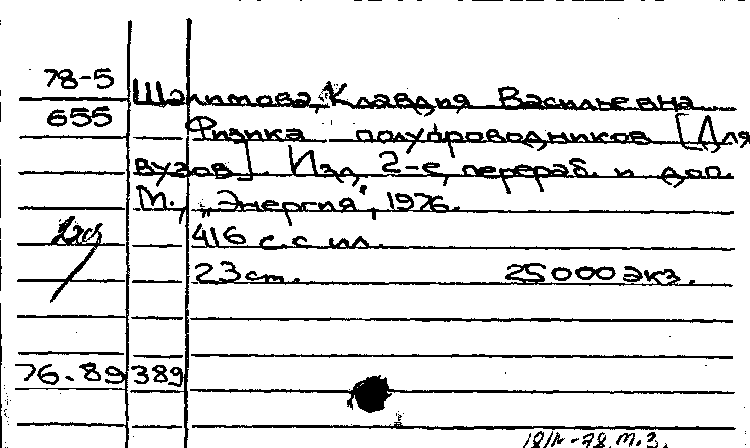 78-5
655
Шалимова, Клавдия Васильевна
Физика полупроводников [Для
вузов]. Изд. 2-е, перераб. и доп.
М., „Энергия", 1976.
416 с. с ил.
2экз
23 см. 25000 экз.
76-89 389